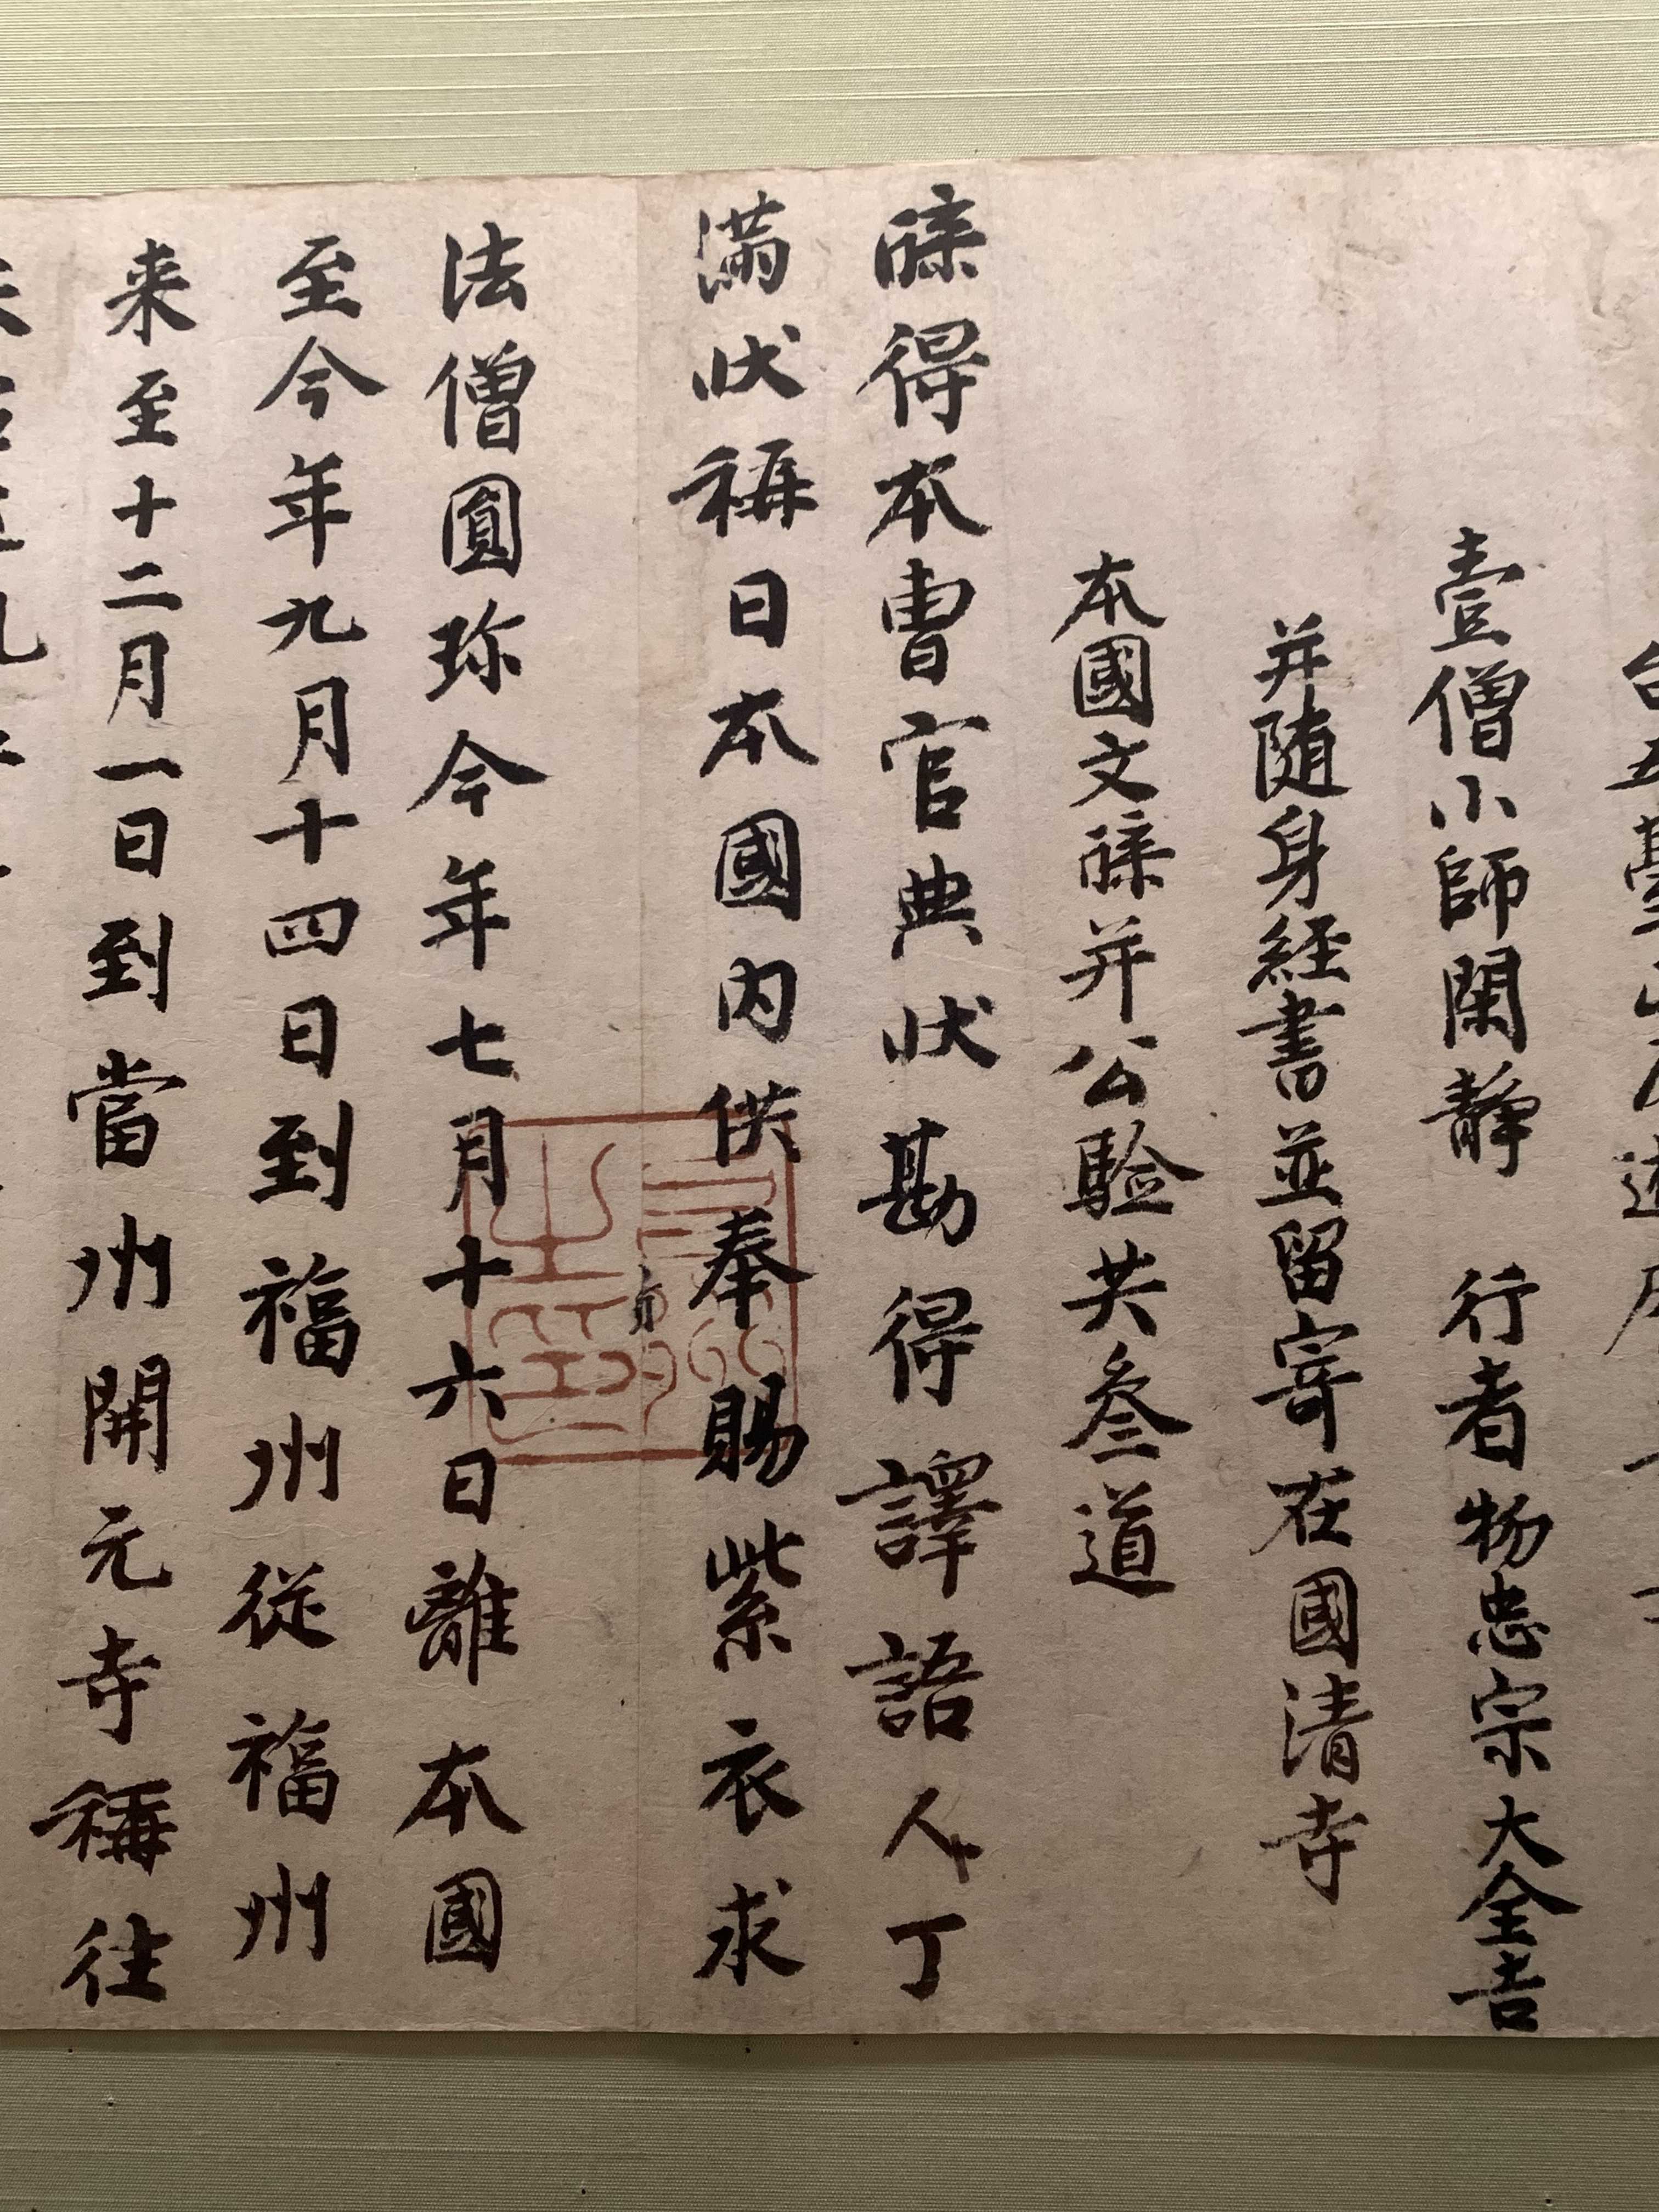 壹僧小師閑静　行者物忠宗大全吉
并随身経書並留寄在國清寺
本國文牒并公驗共叄道
牒得本曹官典状勘得譯語人丁
滿状稱日本國内供奉賜紫衣求
法僧圓珎今年七月十六日離本國
至今年九月十四日到福州従福州
来至十二月一日到當州開元寺稱往